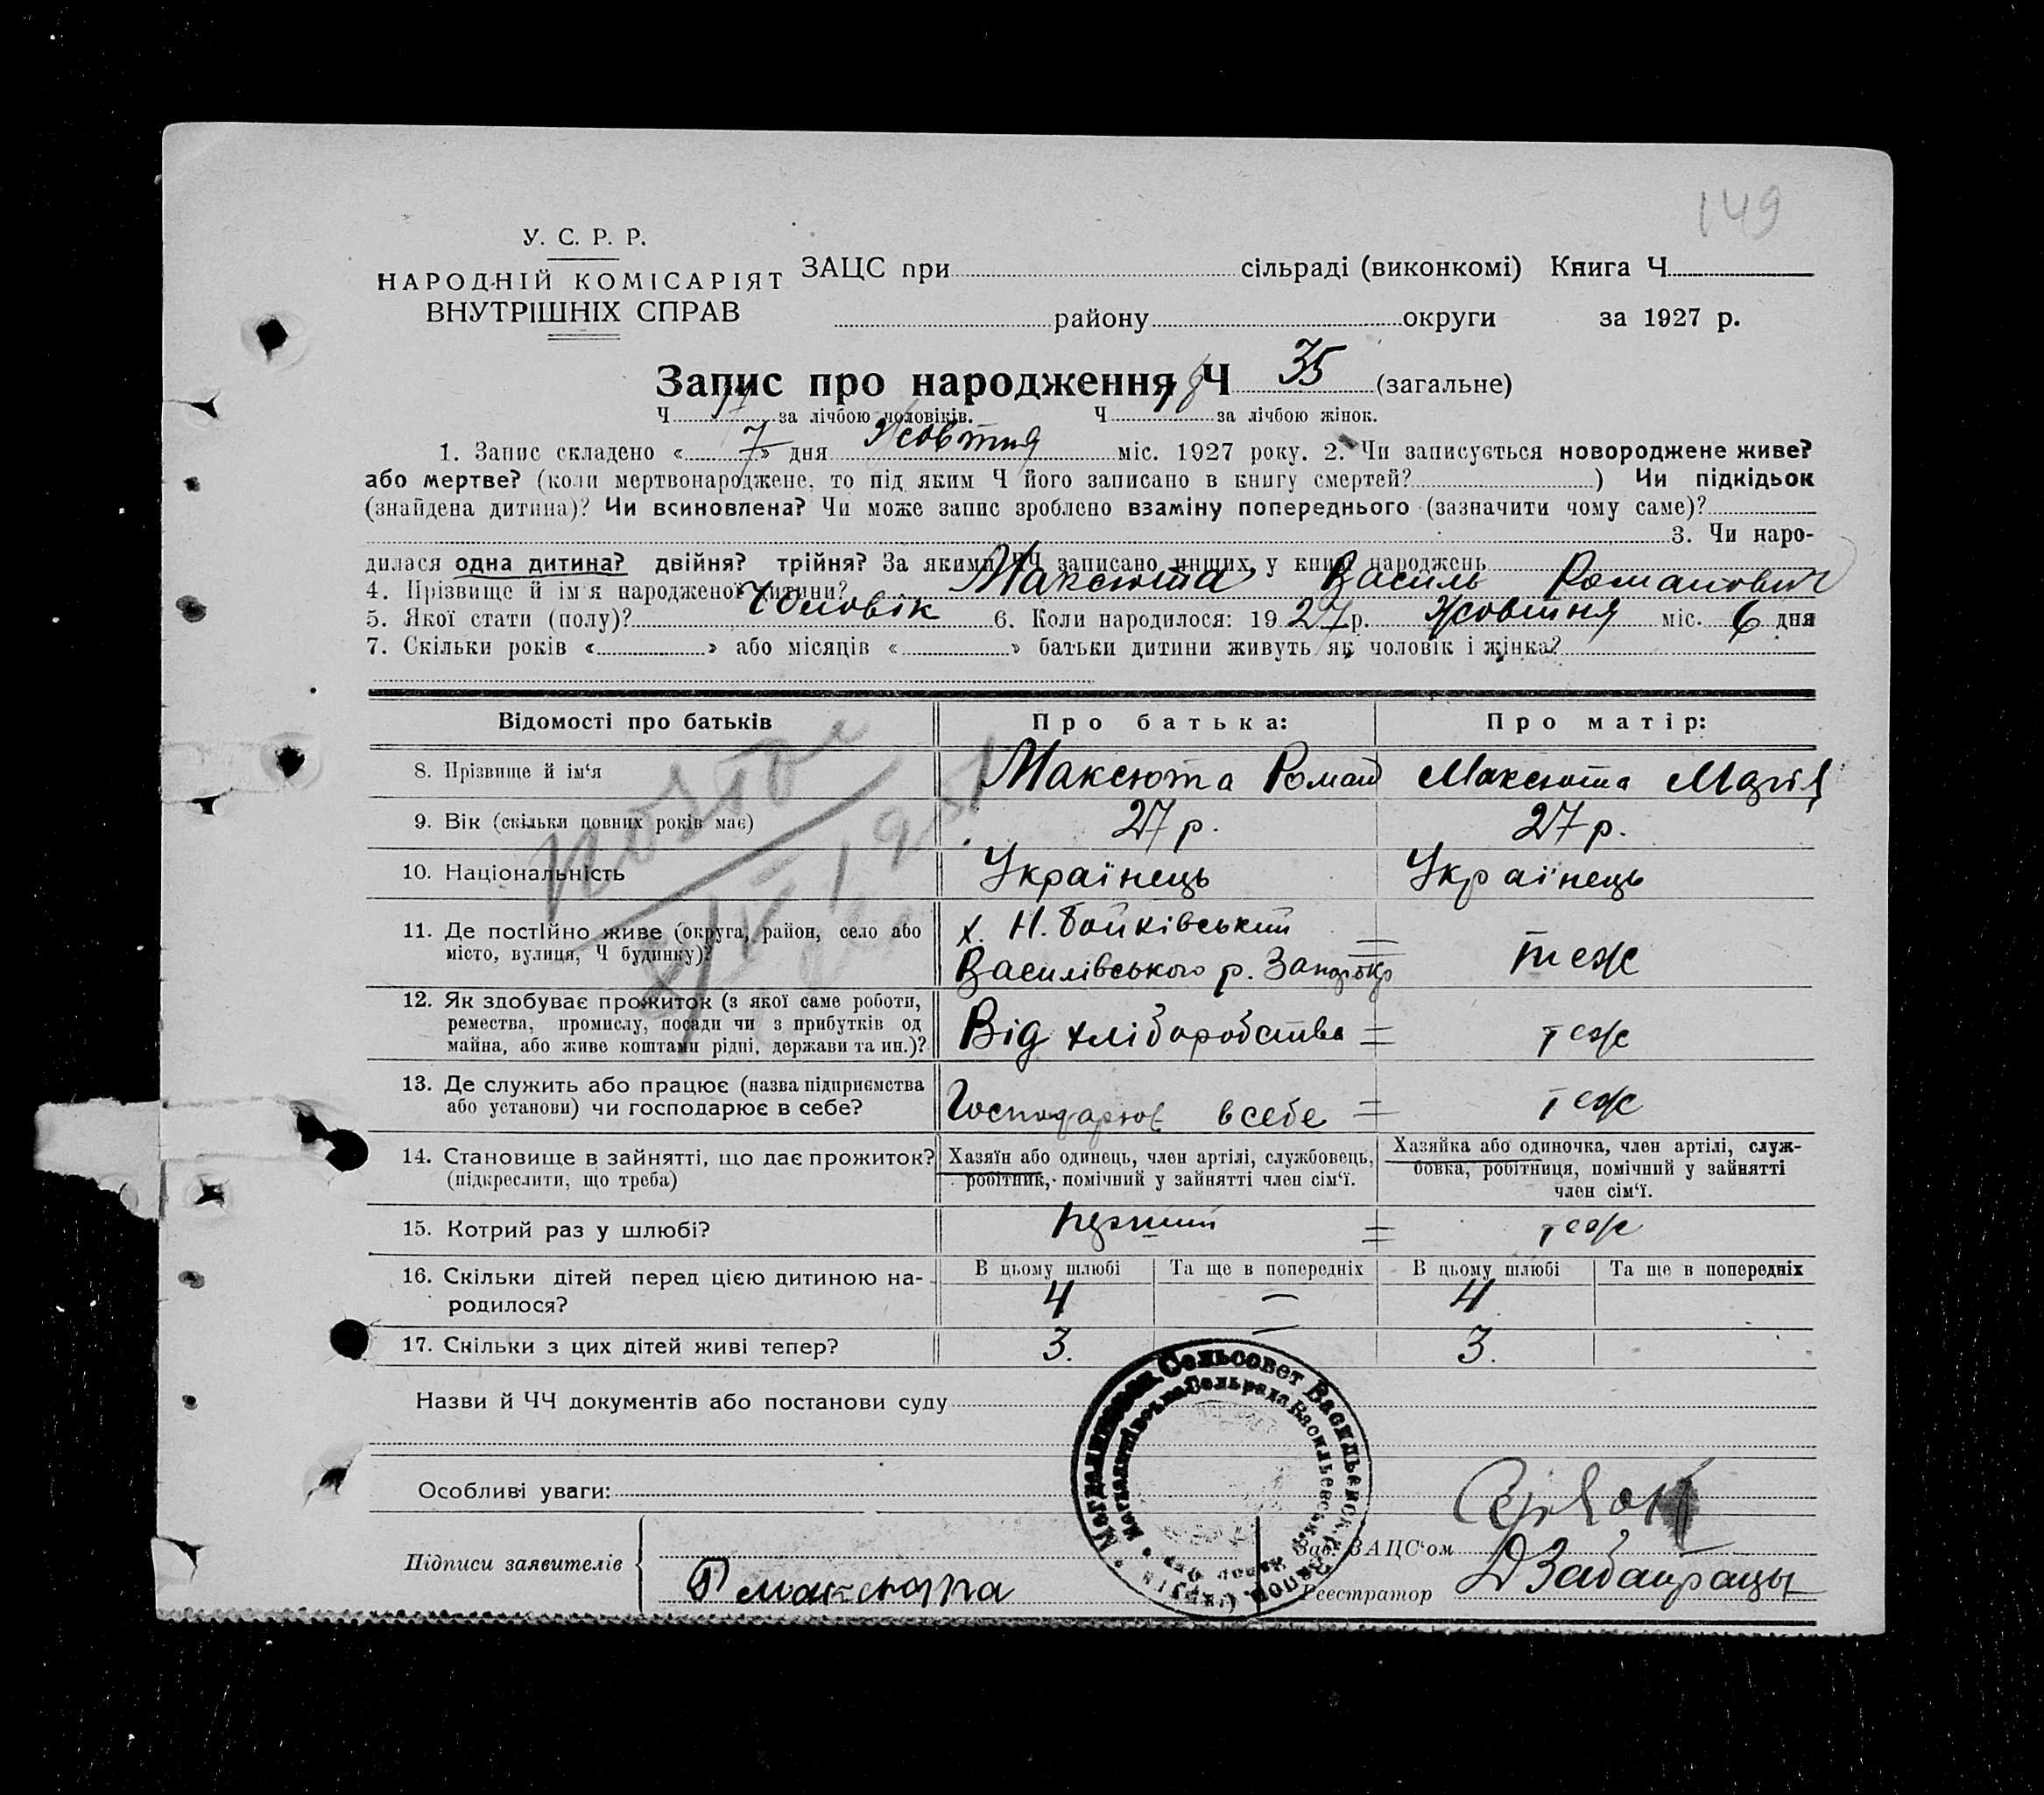 149
У. С. Р. Р.
НАРОДНІЙ КОМІСАРІЯТ
ВНУТРІШНІХ СПРАВ
ЗАЦС при сільраді (виконкомі) Книга Ч
району округи за 1927 р.
Запис про народження Ч 35 (загальне)
Ч 17 за лічбою чоловіків. Ч 18 за лічбою жінок.
1. Запис складено « 7 » дня Жовтня міс. 1927 року. 2. Чи записується новороджене живе?
або мертве? (коли мертвонароджене, то під яким Ч його записано в книгу смертей? ) Чи підкідьок
(знайдена дитина)? Чи всиновлена? Чи може запис зроблено взаміну попереднього (зазначити чому саме)?
3. Чи наро-
дилася одна дитина? двійня? трійня? За якими ЧЧ записано инших у книзі народжень
4. Прізвище й ім'я народженої дитини? Максюта Василь Романович
5. Якої стати (полу)? Чоловік 6. Коли народилося: 1927 р. Жовтня міс. 6 дня
7. Скільки років « » або місяців « » батьки дитини живуть як чоловік і жінка?
Відомості про батьків Про батька: Про матір:
8. Прізвище й ім'я Максюта Роман Максюта Марія
9. Вік (скільки повних років має) 27 р. 27 р.
10. Національність Українець Українець
11. Де постійно живе (округа, район, село або х. Н. Бойківський = теж
місто, вулиця, Ч будинку)? Василівського р.
12. Як здобуває прожиток (з якої саме роботи,
ремества, промислу, посади чи з прибутків од Від хліборобства = теж
майна, або живе коштами рідні, держави та ин.)?
13. Де служить або працює (назва підприємства
або установи) чи господарює в себе? Господарює в себе = теж
14. Становище в зайнятті, що дає прожиток? Хазяїн або одинець, член артілі, службовець, Хазяйка або одиночка, член артілі, служ-
(підкреслити, що треба) робітник, помічний у зайнятті член сім'ї. бовка, робітниця, помічний у зайнятті
член сім'ї.
15. Котрий раз у шлюбі? Перший = теж
16. Скільки дітей перед цією дитиною на- В цьому шлюбі Та ще в попередніх В цьому шлюбі Та ще в попередніх
родилося? 4 – 4
17. Скільки з цих дітей живі тепер? 3. – 3.
Назви й ЧЧ документів або постанови суду
Особливі уваги:
Підписи заявителів Р Максюта
Зав. ЗАЦС'ом
Реєстратор